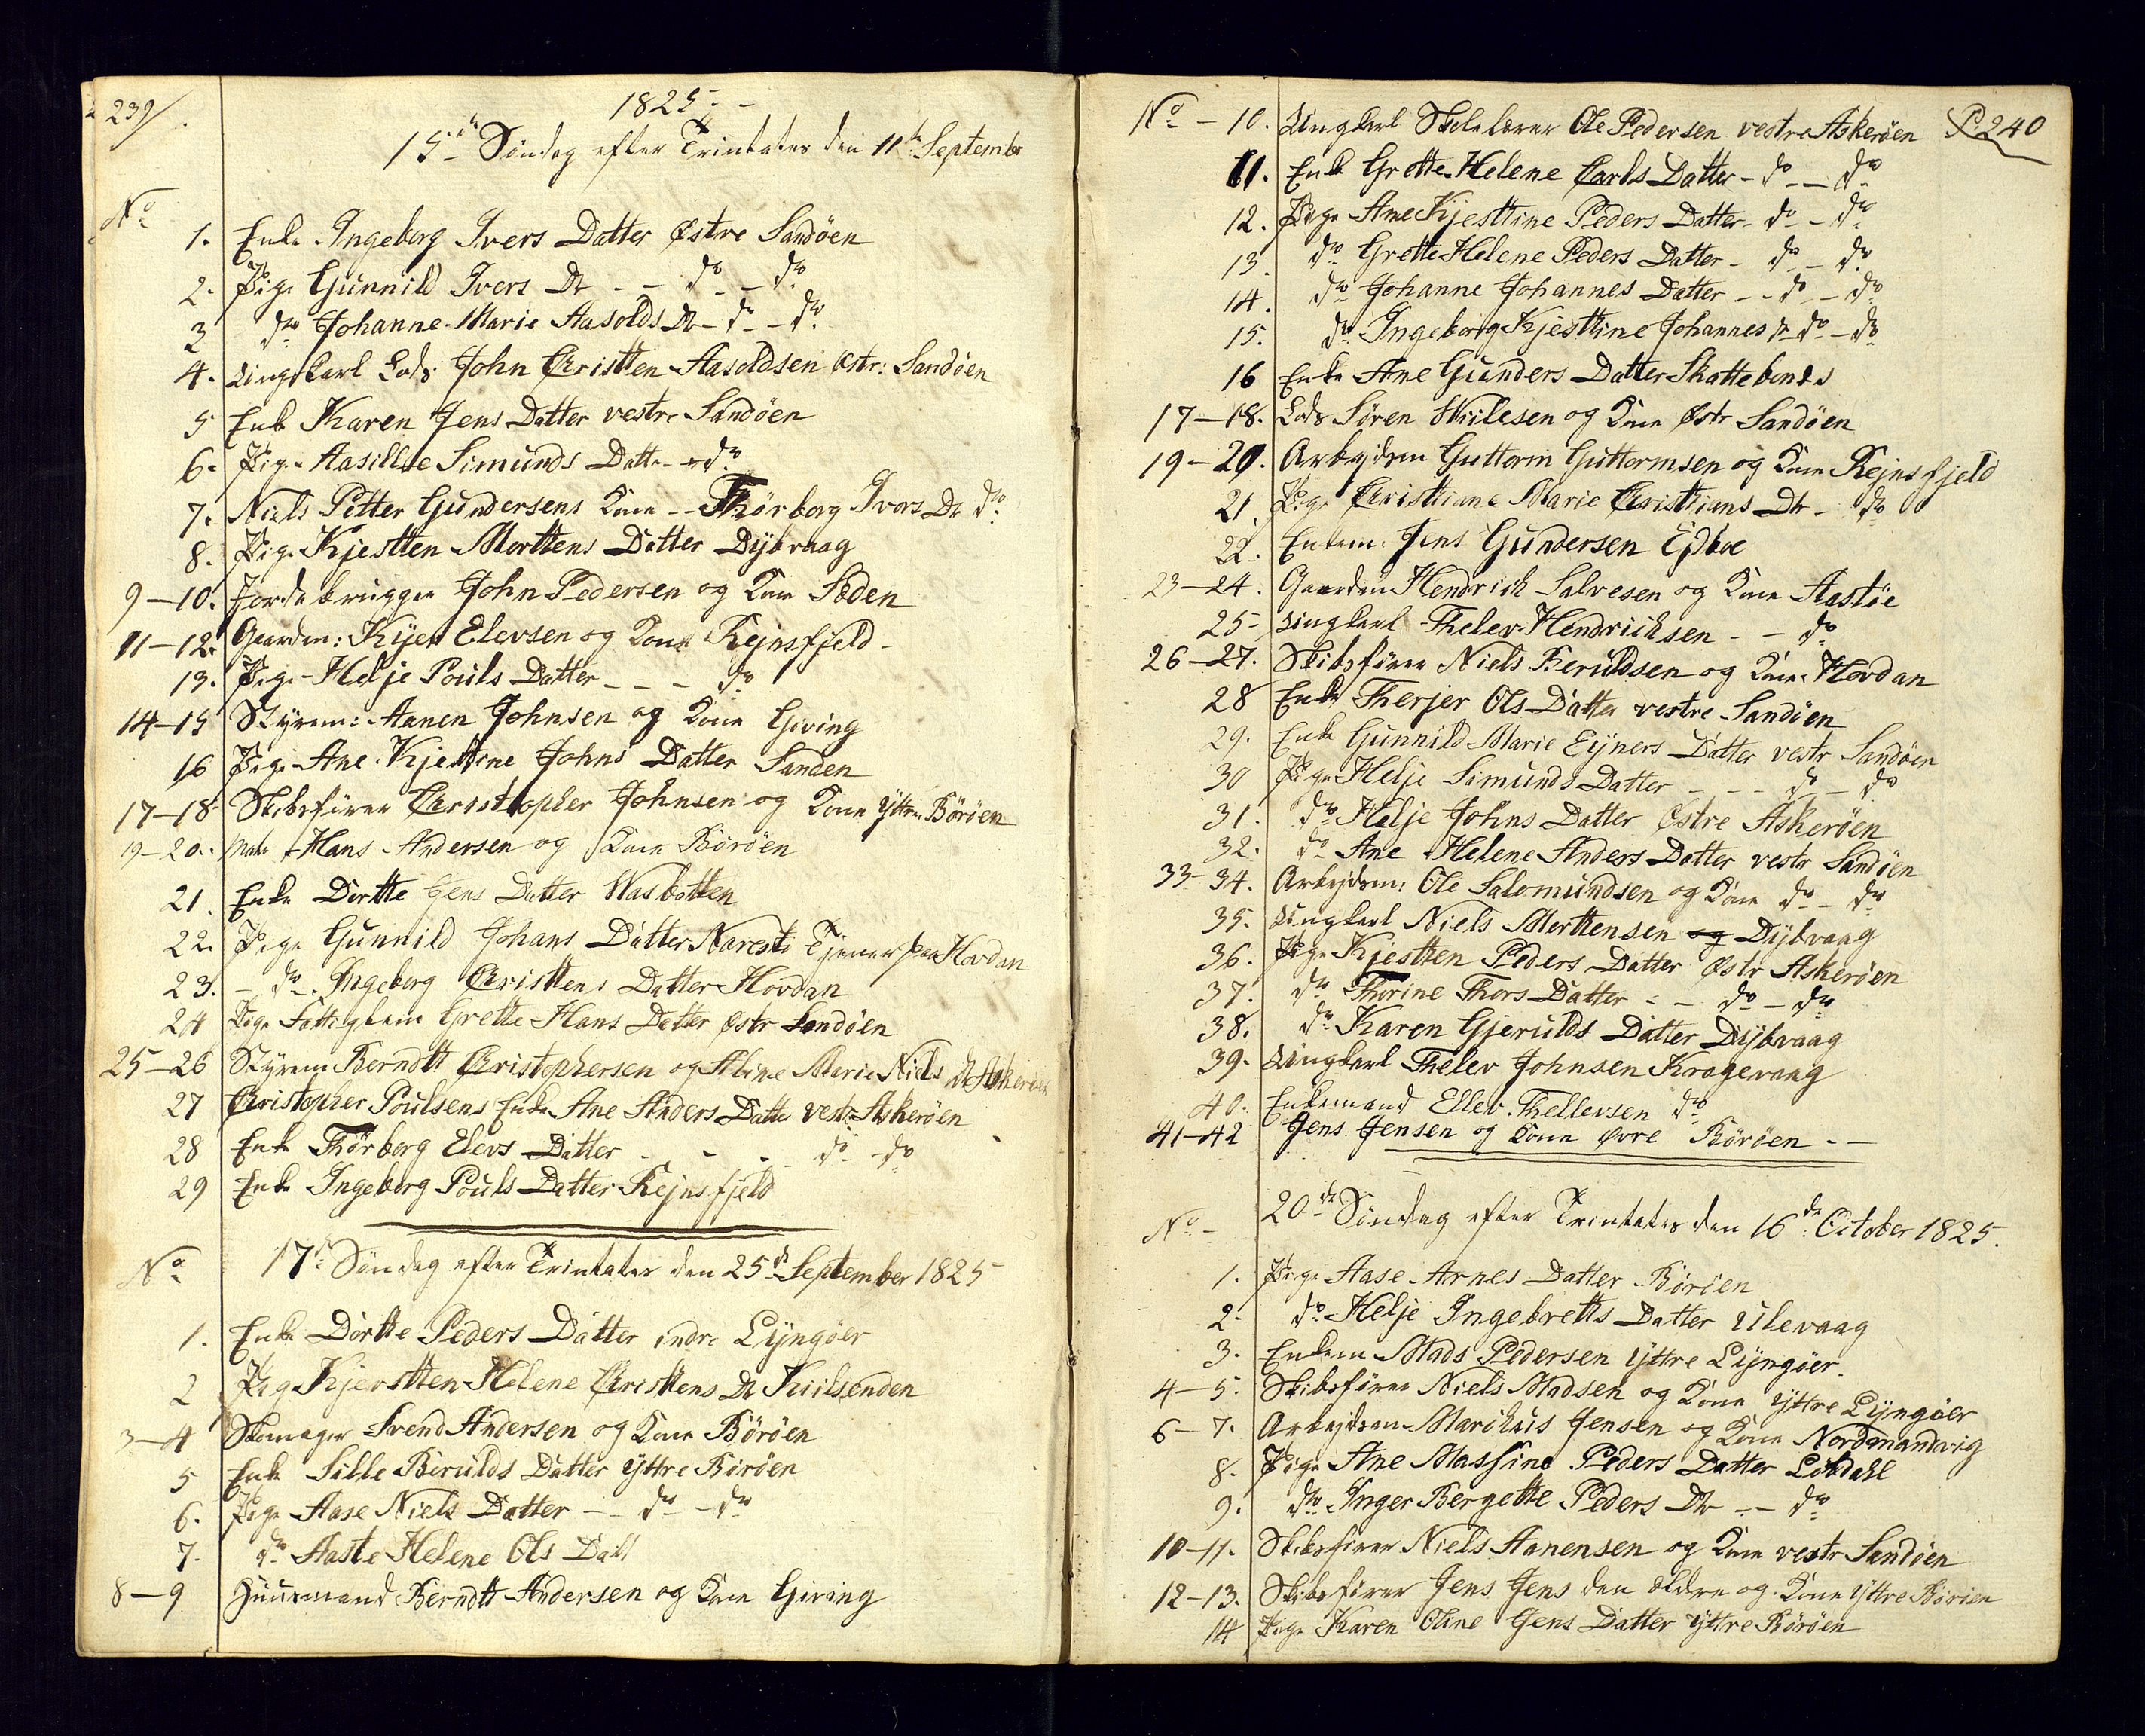 239/
1825
15de Søndag efter Trinitatis den 11te Septembr
No
1. Enke Ingeborg Ivers Datter Østre Sandöen
2. Pige Gunnild Ivers Dr - - do - do
3 do Johanne Marie Aasolds Dr - do - do
4. Ungkarl Lods John Christen Aasoldsen østr: Sandöen
5 Enke Karen Jens Datter vestre Sandöen
6. Pige Aasille Simunds Datter - do
7. Niels Petter Gundersens Kone - - Thörborg Ivers Dr do
8. Pige Kjestten Morttens Datter Dybvaag
9-10. Jordebrugger John Pedersen og Kone Söden
11-12. Gaardm: Kyer Elevsen og Kone Rejnsfjeld
13. Pige Helje Pouls Datter - - - do
14-15 Styrem: Aanen Johnsen og Kone Giving
16 Pige Ane Kjestine Johns Datter Sanden
17-18 Skibsförer Christopher Johnsen og Kone Yttre Böröen
19-20. Hans Andersen og Kone Böröen
21. Enke Dortte Jens Datter Wasbotten
22. Pige Gunnild Johans Datter Narestö Tjener paa Hovdan
23. - do Ingeborg Christens Datter Hovdan
24 Pige Fattiglem Grette Hans Datter østr Sandöen
25-26 Styrem Berndtt Christophersen og Marie Niels Dr Askeröen
27 Christopher Poulsens Enke Ane Anders Datter vestr Askeröen
28 Enke Thörborg Elevs Datter - - - do - do
29 Enke Ingeborg Pouls Datter Rejnsfjeld
No 17de Søndag efter Trinitatis den 25de September 1825
1. Enke Dörtte Peders Datter indre Lyngöer
2 Pige Kjerstten Helene Christens Dr Kiilsenden
3-4 Skomager Svend Andersen og Kone Böröen
5 Enke Sille Berulds Datter Yttre Böröen
6. Pige Aase Niels Datter - - do - do
7. do Aaste Helene Ols Dahl
8-9 Huusmand Berndtt Andersen og Kone Giving
No - 10. Ungkarl Skolelærer Ole Pedersen vestre Askeröen P. 240
11. Enke Grette Helene Carls Datter - do - - do
12. Pige Ane Kjesttine Peders Datter - do - do
13. do Grette Helene Peders Datter - do - do
14. do Johanne Johannes Datter - - do - do
15. do Ingeborg Kjesttine Johannes Dr do - do
16 Enke Ane Gunders Datter Skattebonds
17-18. Lods Sören Wiilesen og Kone Østr Sandöen
19-20. Arbejdsm Guttorm Guttormsen og Kone Rejnsfjeld
21. Pige Christiane Marie Christians Dr - do
22. Enkem. Jens Gundersen Edboe
23-24. Gaardm Hendrich Salvesen og Kone Aastöe
25 - Ungkarl Thelev Hendrichsen - - do
26-27. Skibsförer Niels Beruldsen og Kone Hovdan
28 Enke Therjer Ols Datter vestre Sandöen
29. Enke Gunnild Marie Eyners Datter vestr Sandöen
30 Pige Helje Simunds Datter - - - do - do
31. do Helje Johns Datter Østre Askeröen
32. do Ane Helene Anders Datter vestr Sandöen
33-34. Arbejdsm: Ole Salomundsen og Kone do - do
35. Ungkarl Niels Morttensen og Dybvaag
36. Pige Kjestten Peders Datter Østr Askeröen
37. do Thorine Thors Datter - - do - do
38. do Karen Gjerulds Datter Dybvaag
39. Ungkarl Thelev Johnsen Kragevaag
40. Enkemand Ellev Thellevsen do
41-42 Jens Jensen og Kone Øvre Böröen - -
No - 20de Søndag efter Trinitatis den 16de October 1825.
1. Pige Aase Arnes Datter Böröen
2. do Helje Ingebretts Datter Ulevaag
3. Enkem Mads Pedersen Yttre Lyngöer.
4-5. Skibsförer Niels Madsen og Kone Yttre Lyngöer
6-7. Arbejdsm Marikus Jensen og Kone Nordmandvig
8. Pige Ane Massine Peders Datter Lökdahl
9. do Inger Bergette Peders Dr - - do
10-11. Skibsförer Niels Aanensen og Kone vestr Sandöen
12-13. Skibsförer Jens Jens den Ældre og Kone Yttre Böröen
14 Pige Karen Oline Jens Datter Yttre Böröen